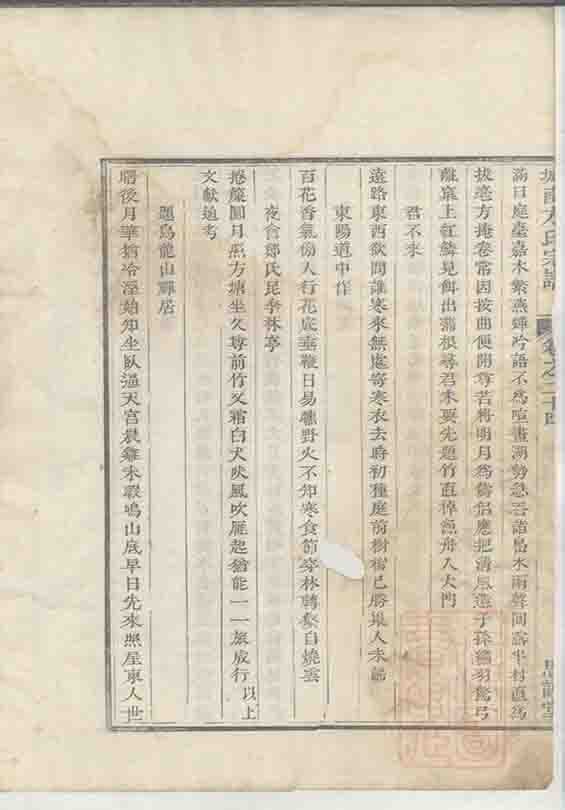 城南方氏宗譜 卷之二十四
滿目庭臺嘉木繁燕蟬吟語不為喧晝潮勢急吞諸島木雨聲回露半村直為
拔毫方捲卷常因按曲便開尊若將明月為儔侶應把清風遺子孫繡羽驚弓
離菓上紅鱗見餌出蒲根尋君未要先題竹直棹漁舟入大門
君不來
遠路東西欲問誰寒來無處寄寒衣去時初種庭前樹樹已勝巢人未歸
東陽道中作
百花香氣傍人行花底垂鞭日易曛野火不知寒食節穿林轉壑自燒雲
夜會鄭氏昆季林亭
捲簾圓月照方塘坐久尊前竹又霜白犬吠風吹雁起猶能一一旅成行 以上
文獻通考
題烏龍山禪居
曙後月華猶冷溼始知坐臥逼天宮晨雞未暇鳴山底早日先來照屋東人世